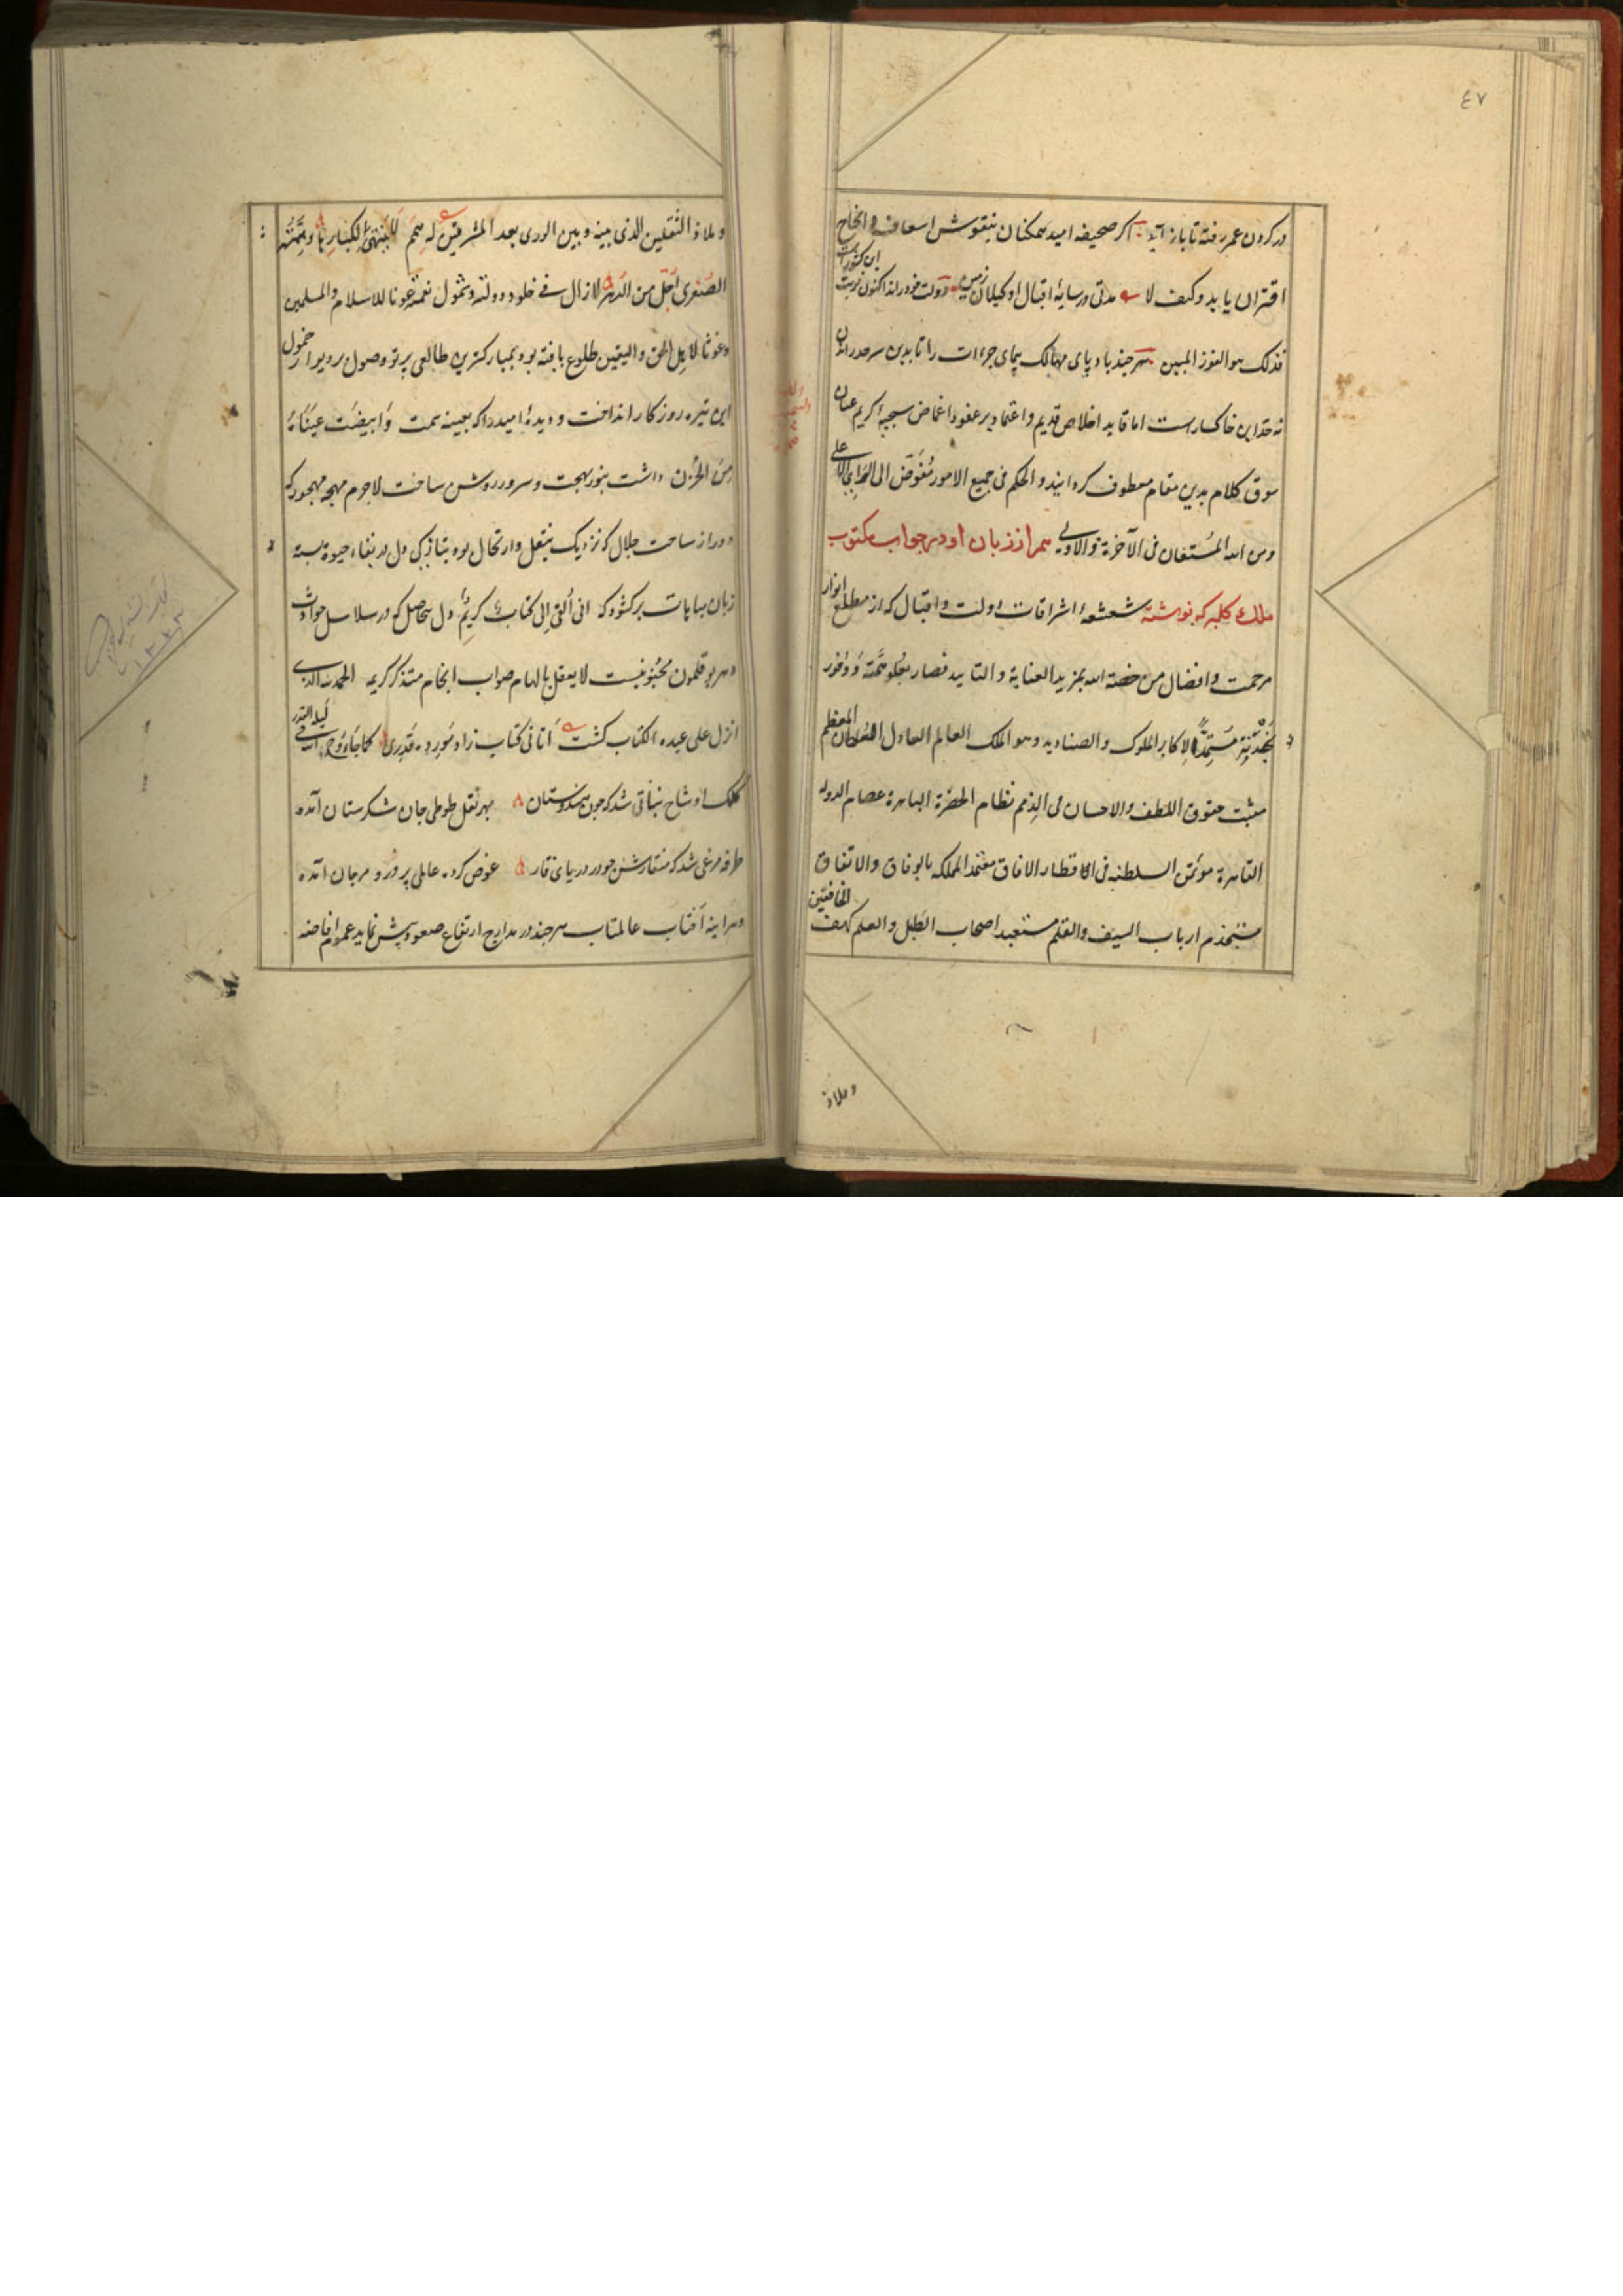 ٤٧
در کردن عمر رفته تا باز آید اکر صحیفه امید همکنان بنقوش اسعاف و انجاح
اقتران یابد وکیف لا مدتی در سایهٔ اقبال او کیلان زمین دولت خود راند اکنون نوبت این کشورست
فذلک هو الفوز المبین هر چند باد پای مهالک پیمای جرءات را تا بدین سرحد راندن
نه حد این خاکسارست اما قاید اخلاص قدیم و اعتماد بر عفو و اغماض سجیهٔ کریم عنان
سوق کلام بدین مقام معطوف کردانید و الحکم فی جمیع الامور مُفَوَّض الی الرای الاعلی
ومن الله المُستعان فی الآخرة والاولی همر از زبان او در جواب مکتوب
ملک کلبرکه نوشته شعشعهٔ اشراقات دولت و اقبال که از مطلع انوار
مرحمت و افضال من خصّه الله بمزید العنایة و التایید فصار بعلو همّته وَ وُفور
مُستمدًّا لاکابر الملوک والصنادید وهو الملک العالم العادل المعظم
مثبت حقوق اللطف والاحسان فی الذمم نظام الحضرة الباهرة عصام الدوله
القاهرة موتمن السلطنه فی الاقطار الافاق معتمد المملکه بالوفاق والاتفاق
مستخدم ارباب السیف والقلم مستعبد اصحاب الطبل والعلم کهف الخافقین
وملاذ
وملاذ الثقلین الذی بینه و بین الوری بعد المشرقین له همم لا منتهی لکبارها وهمته
الصغری اجل من الدهر لازال فی خلود دولته وشمول نعمته عونا للاسلام والمسلمین
وغوثا لاهل الحق والیقین طلوع یافته بود بمبارکترین طالعی پرتو وصول بر دیوار خمول
این تیره روزکار انداخت و دیدهٔ امید را که بعینه سمت وَابیضّت عَیناهُ
مِنَ الحُزن داشت بنور بهجت و سرور روشن ساخت لاجرم مهجهٔ مهجور که
دور از ساحت جلال که نزدیک بنقل و ارتحال بود بتازکی دل در بقاء حیوة بسته
زبان مباهات برکشود که انی اُلقیَ اِلی کتابٌ کریم و دل بیحاصل که در سلاسل حوادث
دهر بوقلمون لا یعقل بالهام صواب انجام متذکر کریمه الحمد لله الذی
انزل علی عبده الکتاب کشت اَتانی کتاب زاد مَورِده قدری کما جاءَ وحی الله فی لیلة القدر
کلک او شاخ نباتی شد که چون هندوستان بهر نقل طوطی جان شکرستان آمده
طرفه مرغی شد که منقارش چو در دریای قار غوص کرده عاملی پر دُر و مرجان آمده
وهر اینه آفتاب عالمتاب هر چند در مدارج ارتفاع صعود پیش نماید عموم افاضه